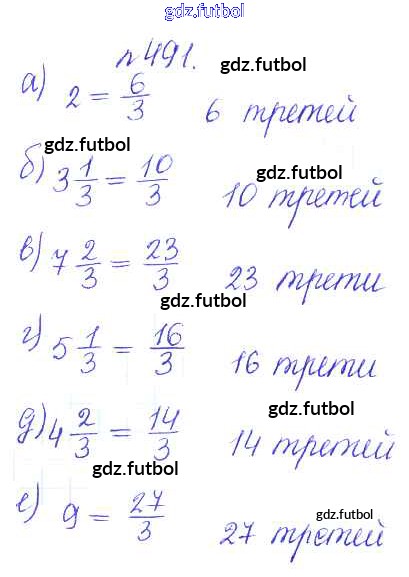 gdz.futbol
n 491. gdz.futbol
а) 2 = 6/3 6 третей
gdz.futbol
б) 3 1/3 = 10/3 gdz.futbol 10 третей
в) 7 2/3 = 23/3 23 трети
gdz.futbol
г) 5 1/3 = 16/3 16 трети
gdz.futbol
д) 4 2/3 = 14/3 14 третей
gdz.futbol
е) 9 = 27/3 gdz.futbol 27 третей